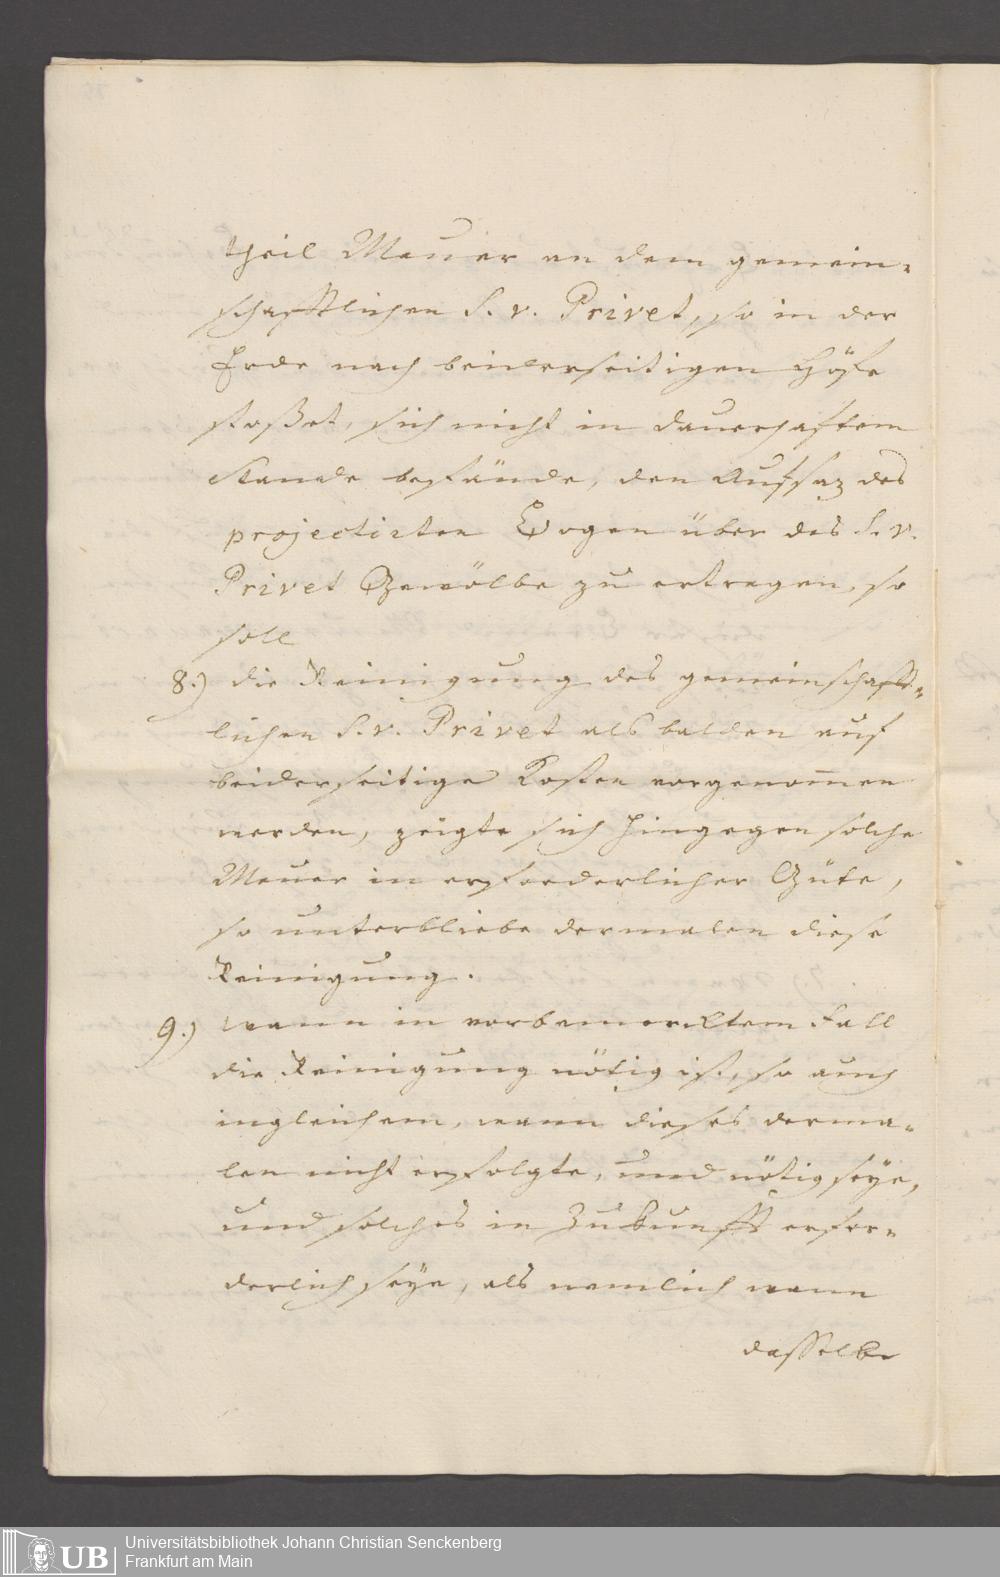 theil Mauer an dem gemein-
schafftlichen S. v. Privet, so in der
Erde nach beiderseitigen Höfe
stoßet, sich nicht in dauerhaftem
Stande befände, den Aufsaz des
projectirten Bogen über des S. v.
Privet Gewölbe zu ertragen, so
soll
8.) die Reinigung des gemeinschafft-
lichen S. v. Privet alsbalden auf
beiderseitige Kosten vorgenommen
werden, zeigte sich hingegen solche
Mauer in erforderlicher Güte,
so unterbliebe dermalen diese
Reinigung.
9.) wann in vorbemercktem Fall
die Reinigung nötig ist, so auch
ingleichem, wann dieses derma-
len nicht erfolgte, und nötig seye,
und solches in Zukunfft erfor-
derlich seye, als nemlich wann
dasselbe
UB
Universitätsbibliothek Johann Christian Senckenberg
Frankfurt am Main